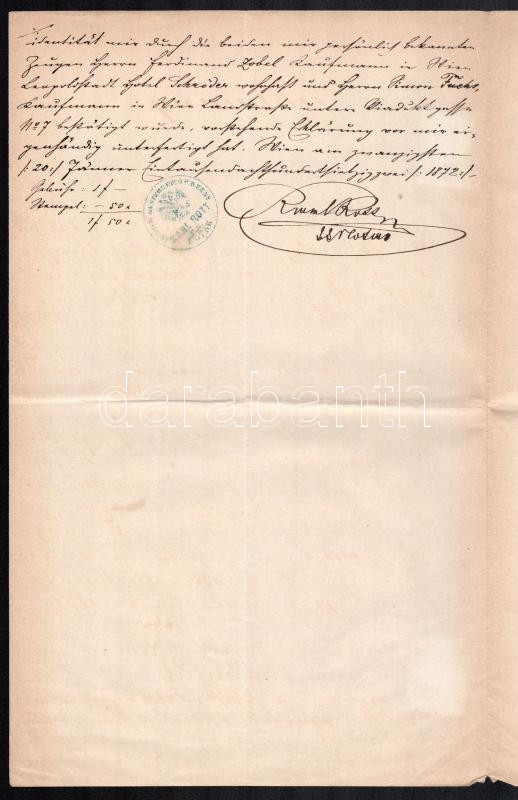 identität mir durch die beiden mir persönlich bekannten
Zeugen Herrn Ferdinand Zobel Kaufmann in Wien
Leopoldstadt Hotel Schröder wohnhaft und Herrn Simon Fuchs,
Kaufmann in Wien Landstraße untere Viaduktgasse
No 7 bestätigt wurde, vorstehende Erklärung vor mir ei-
genhändig unterfertigt hat. Wien am zwanzigsten
/: 20 :/ Jänner Eintausendachthundertsiebzigzwei /: 1872 :/
Gebühr: 1 f —
Stempel: — 50 x
1 f 50 x
darabanth